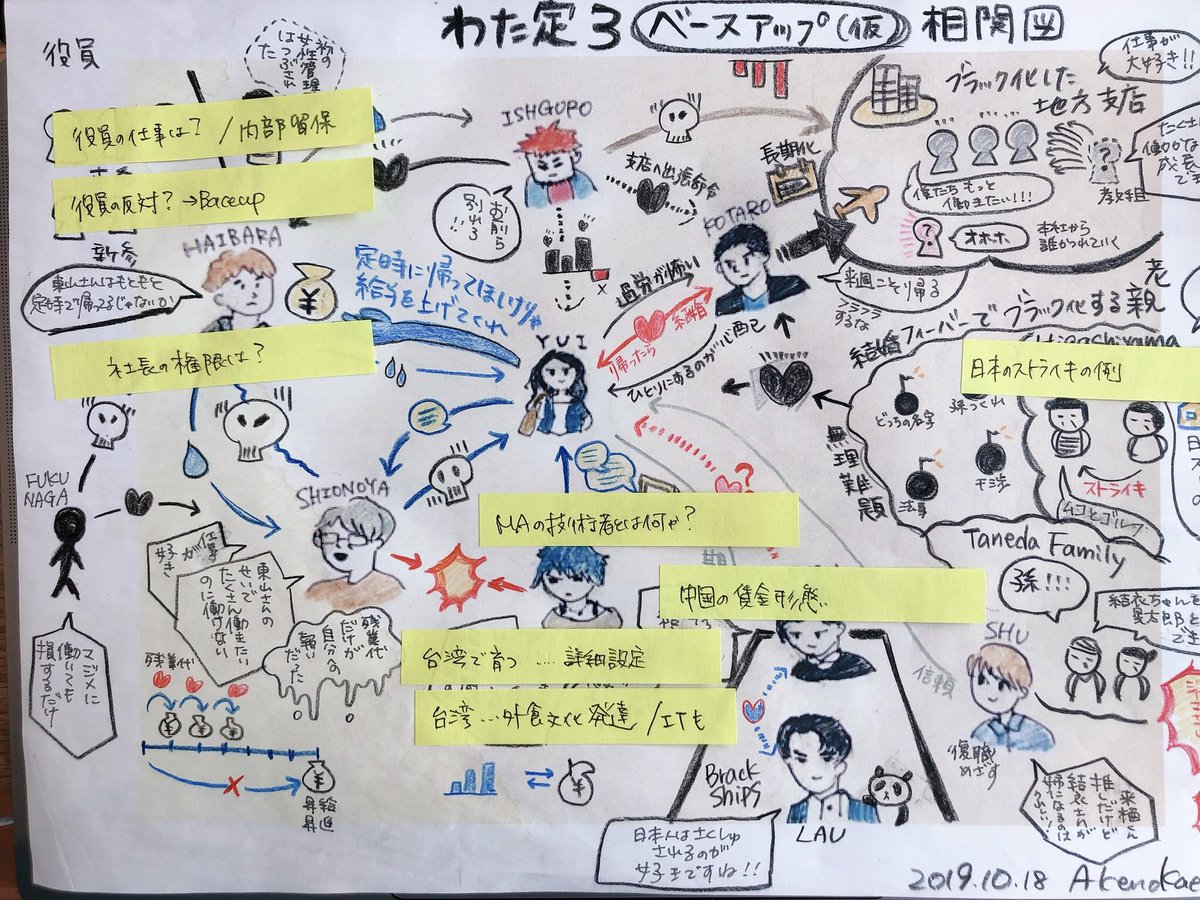 わた定3 ベースアップ(仮) 相関図
役員
初の
女性管理
はつぶされ
た
役員の仕事は? / 内部留保
役員の反対? → Baceup
新参
HAIBARA
東山さんはもともと
定時で帰ってるじゃないか
社長の権限は?
ISHGURO
お前ら
別れろ
!!
支店へ出張命令
長期化
KOTARO
ブラック化した
地方支店
仕事が
大好き!!
僕たちもっと
働きたい!!!
オホホ
本社から
誰かつれていく
定時に帰ってほしけりゃ
給与を上げてくれ
過労が怖い
結婚
帰ったら
ひとりにするのが心配
来週ごとり帰る
フラフラ
するな
YUI
結婚フィーバーでブラック化する親
Higashiyama
日本のストライキの例
どっちの名字
孫つくれ
干渉
法事
無理難題
ストライキ
ムコとゴルフ
Taneda Family
孫!!!
FUKU
NAGA
マジメに
働いても
損するだけ
SHIONOYA
仕事
が
好き
東山さんの
せいで
たくさん働きたい
のに働けない
残業代
だけが
自分の
報い
だった
残業代
昇給
昇進
MAの技術者とは何か?
中国の賃金形態
台湾で育つ ..... 詳細設定
台湾...外食文化発達/ITも
Brack
Ships
LAU
日本人はさくしゅ
されるのが
好きですね!!
SHU
信頼
復職
めざす
来栖くん
推しだけど
結衣さんが
姉になるのは
うれしい!
2019.10.18 AkenoKae